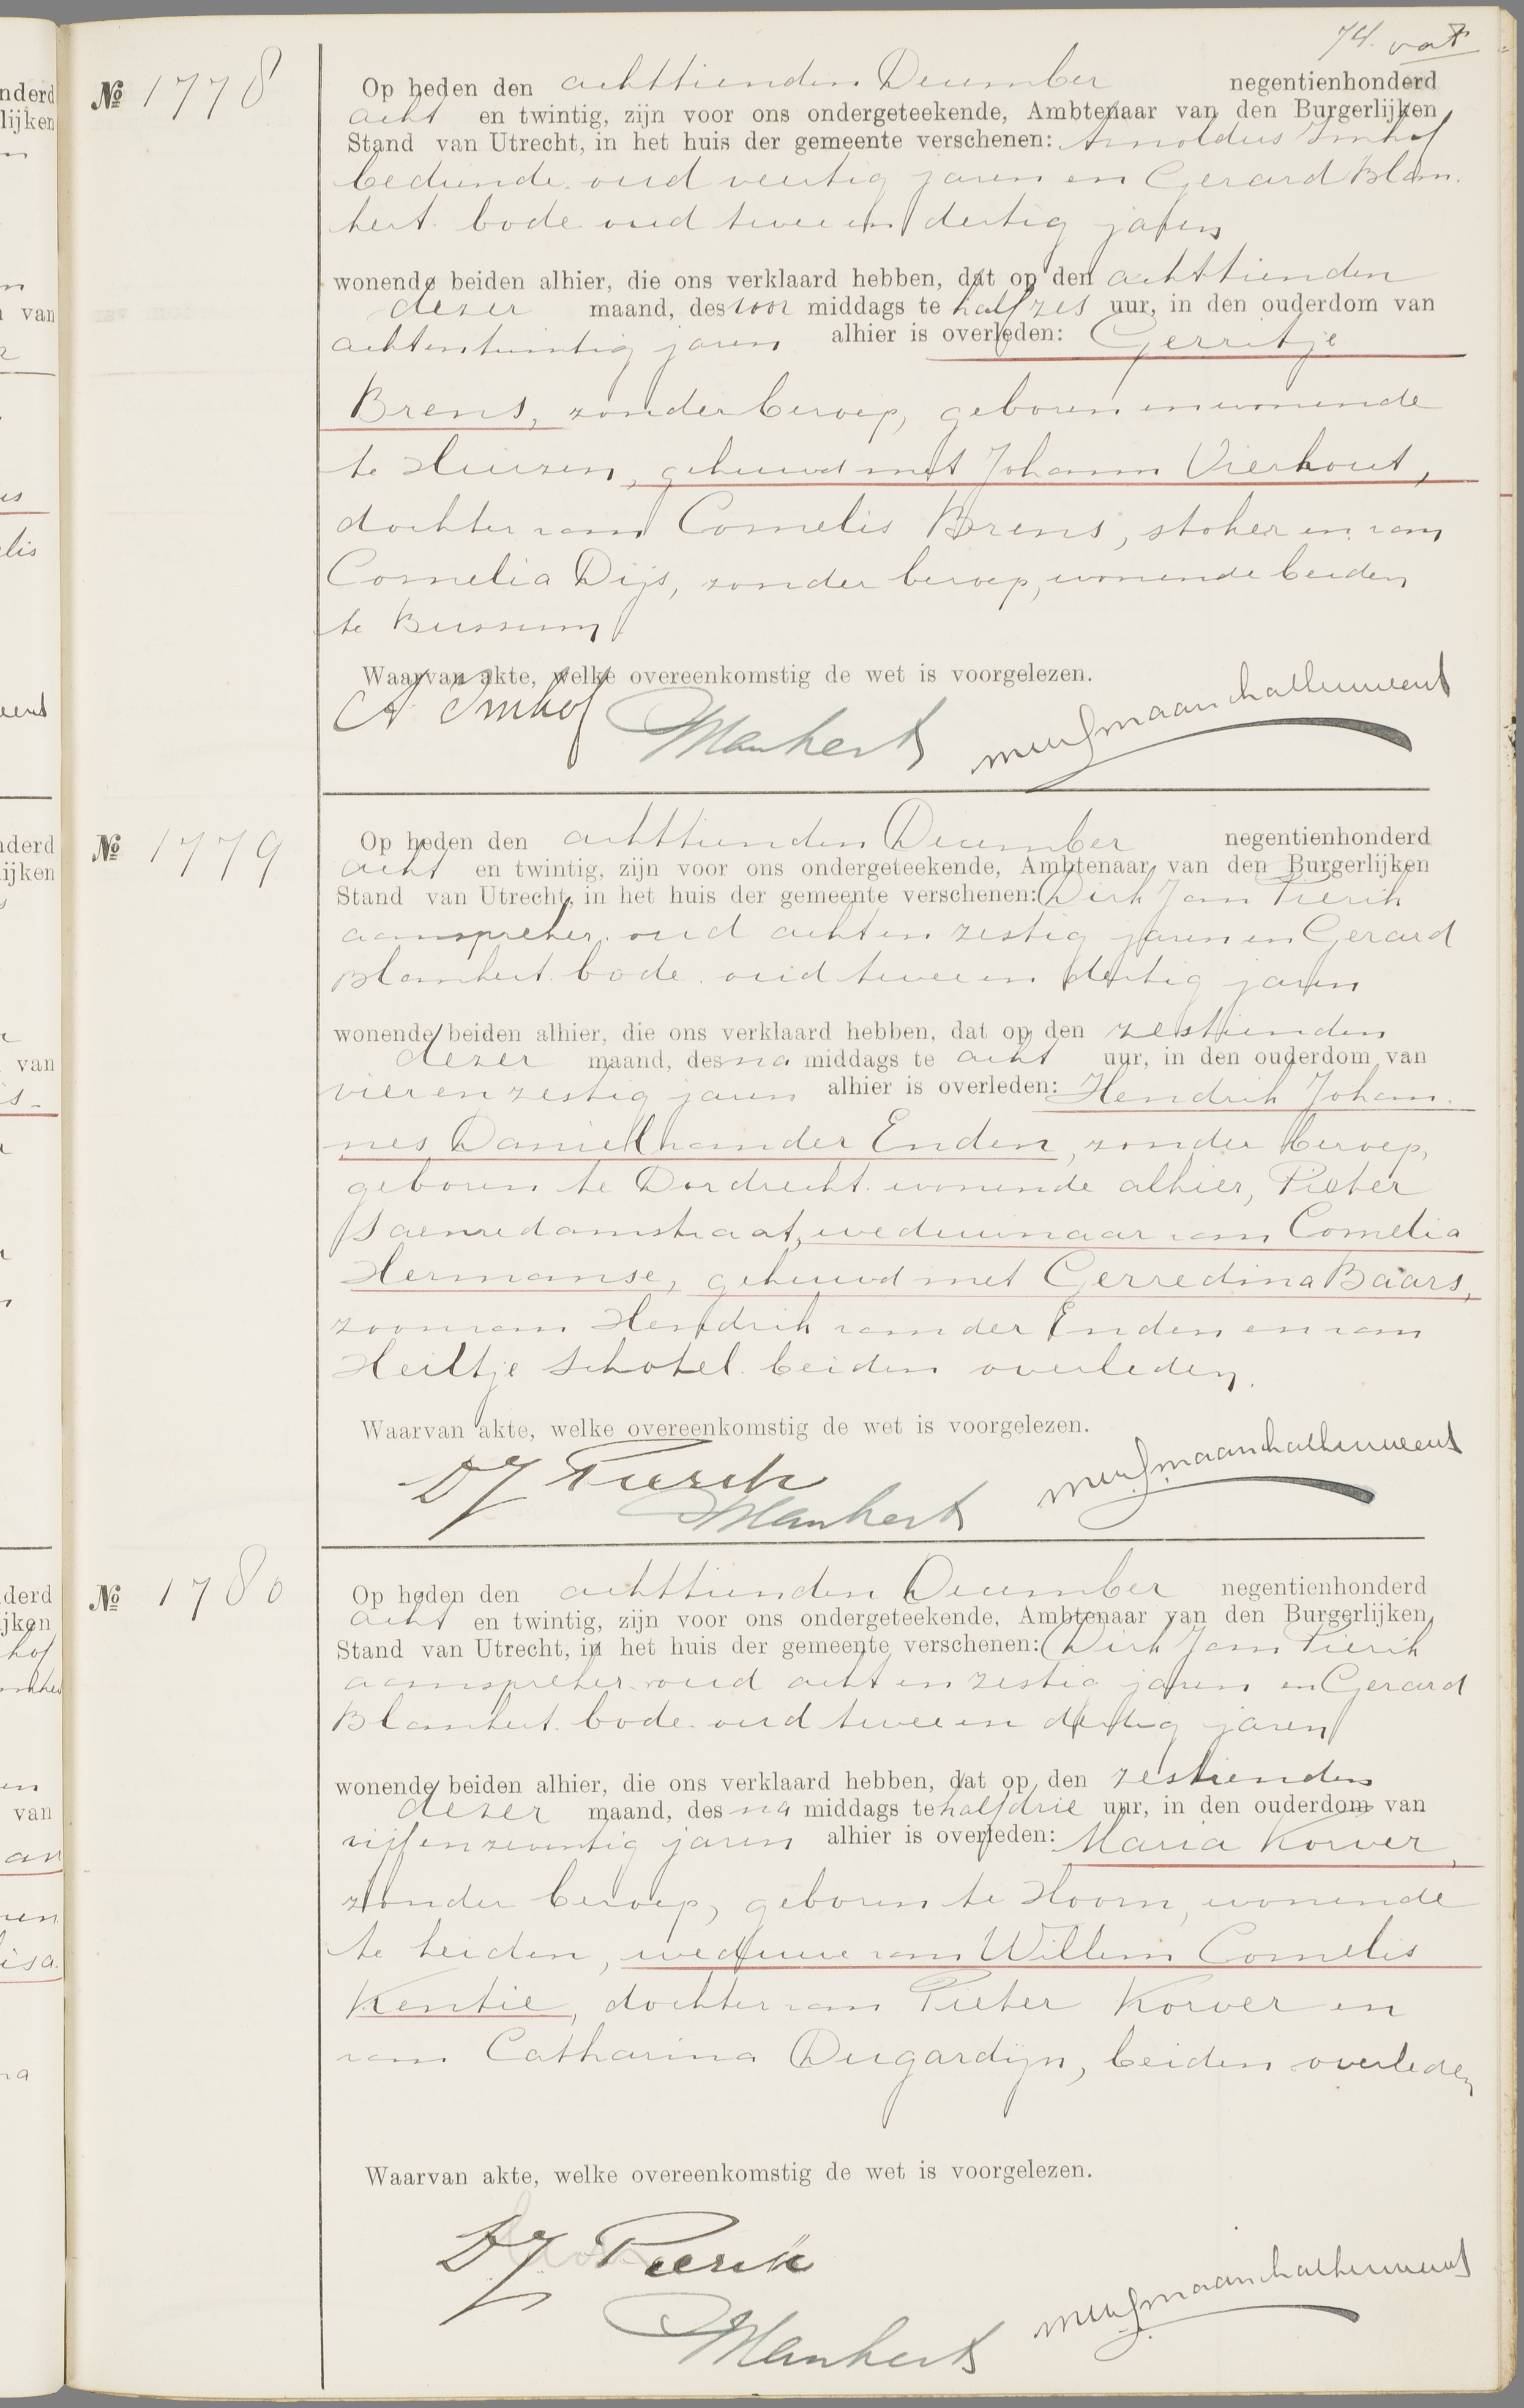 74. vat
No 1778
Op heden den achttienden December negentienhonderd
acht en twintig, zijn voor ons ondergeteekende, Ambtenaar van den Burgerlijken
Stand van Utrecht, in het huis der gemeente verschenen: Arnoldus Imhof
bediende oud veertig jaren en Gerard Blan
kert bode oud twee en dertig jaren
wonende beiden alhier, die ons verklaard hebben, dat op den achttienden
dezer maand, des voor middags te half zes uur, in den ouderdom van
achtentwintig jaren alhier is overleden: Gerritje
Brens, zonder beroep, geboren en wonende
te Huizen, gehuwd met Johann Vierhout,
dochter van Cornelis Brens, stoker en van
Cornelia Dijs, zonder beroep, wonende beiden
te Bussum
Waarvan akte, welke overeenkomstig de wet is voorgelezen.
A Imhof Blankert
No 1779
Op heden den achttienden December negentienhonderd
acht en twintig, zijn voor ons ondergeteekende, Ambtenaar van den Burgerlijken
Stand van Utrecht, in het huis der gemeente verschenen: Dirk Jan Pierik
aanspreker oud acht en zestig jaren en Gerard
Blankert bode oud twee en dertig jaren
wonende beiden alhier, die ons verklaard hebben, dat op den zestienden
dezer maand, des na middags te acht uur, in den ouderdom van
vier en zestig jaren alhier is overleden: Hendrik Johan
nes Daniel van der Enden, zonder beroep,
geboren te Dordrecht wonende alhier, Pieter
Saenredamstraat, weduwnaar van Cornelia
Hermanse, gehuwd met Gerredina Baars,
zoon van Hendrik van der Enden en van
Heiltje Schotel beiden overleden.
Waarvan akte, welke overeenkomstig de wet is voorgelezen.
DJ Pierik
Blankert
No 1780
Op heden den achttienden December negentienhonderd
acht en twintig, zijn voor ons ondergeteekende, Ambtenaar van den Burgerlijken
Stand van Utrecht, in het huis der gemeente verschenen: Dirk Jan Pierik
aanspreker oud acht en zestig jaren en Gerard
Blankert bode oud twee en dertig jaren
wonende beiden alhier, die ons verklaard hebben, dat op den zestienden
dezer maand, des na middags te half drie uur, in den ouderdom van
vijf en zeventig jaren alhier is overleden: Maria Korver,
zonder beroep, geboren te Hoorn, wonende
te Leiden, weduwe van Willem Cornelis
Kentie, dochter van Pieter Korver en
van Catharina Dugardijn, beiden overleden
Waarvan akte, welke overeenkomstig de wet is voorgelezen.
DJ Pierik
Blankert